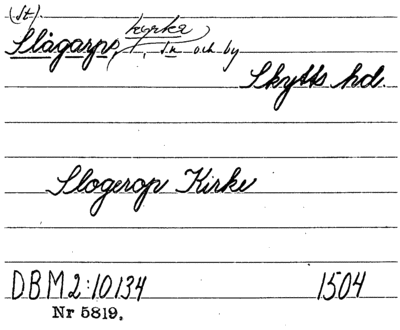 (st).
kyrka
Slågarps, sn och by
Skytts hd.
Slogerop Kirke
DBM 2:10134 1504
Nr 5819.